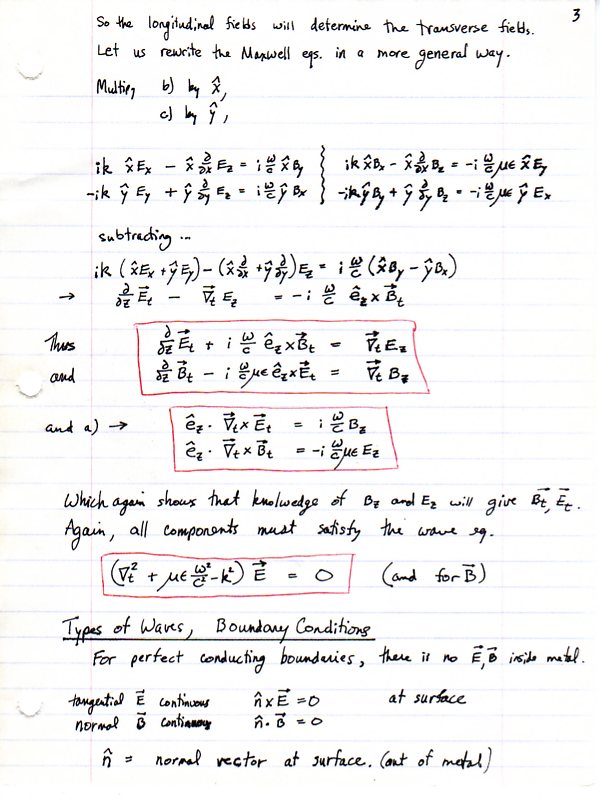 3
So the longitudinal fields will determine the transverse fields.
Let us rewrite the Maxwell eqs. in a more general way.
Multiply b) by x̂,
c) by ŷ,
ik x̂Eₓ − x̂ ∂/∂x E_z = i ω/c x̂B_y } ik x̂Bₓ − x̂ ∂/∂x B_z = −i ω/c με x̂ E_y
−ik ŷ E_y + ŷ ∂/∂y E_z = i ω/c ŷ Bₓ } −ik ŷB_y + ŷ ∂/∂y B_z = −i ω/c με ŷ Eₓ
subtracting ...
ik (x̂Eₓ + ŷE_y) − (x̂ ∂/∂x + ŷ ∂/∂y) E_z = i ω/c (x̂B_y − ŷBₓ)
→ ∂/∂z E⃗_t − ∇⃗_t E_z = −i ω/c ê_z × B⃗_t
Thus ∂/∂z E⃗_t + i ω/c ê_z × B⃗_t = ∇⃗_t E_z
and ∂/∂z B⃗_t − i ω/c με ê_z × E⃗_t = ∇⃗_t B_z
and a) → ê_z · ∇⃗_t × E⃗_t = i ω/c B_z
ê_z · ∇⃗_t × B⃗_t = −i ω/c με E_z
Which again shows that knolwedge of B_z and E_z will give B⃗_t, E⃗_t.
Again, all components must satisfy the wave eq.
(∇_t² + με ω²/c² − k²) E⃗ = 0 (and for B⃗)
Types of Waves, Boundary Conditions
For perfect conducting boundaries, there is no E⃗, B⃗ inside metal.
tangential E⃗ continuous n̂ × E⃗ = 0 at surface
normal B⃗ continuous n̂ · B⃗ = 0
n̂ = normal vector at surface. (out of metal)